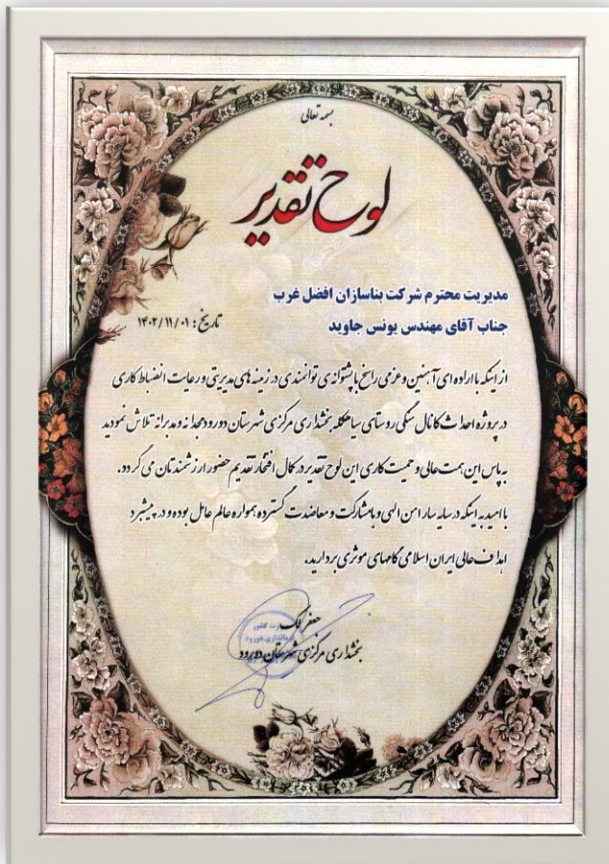 بسمه تعالی
لوح تقدیر
مدیریت محترم شرکت بناسازان افضل غرب
جناب آقای مهندس یونس جاوید
تاریخ: ۱۴۰۲/۱۱/۰۱
از اینکه با اراده ای آهنین و عزمی راسخ با پشتوانه ی توانمندی در زمینه های مدیریتی و رعایت انضباط کاری
در پروژه احداث کانال سنگی روستای سیاهکله بخشداری مرکزی شهرستان دورود مجدانه و مدبرانه تلاش نمودید
به پاس این همت عالی و حمیت کاری این لوح تقدیر در کمال افتخار تقدیم حضور ارزشمندتان می گردد.
با امید به اینکه در سایه سار امن الهی و با مشارکت و معاضدت گسترده همواره عالم عامل بوده و در پیشبرد
اهداف عالی ایران اسلامی گامهای موثری بردارید.
جعفر لک
بخشداری مرکزی شهرستان دورود